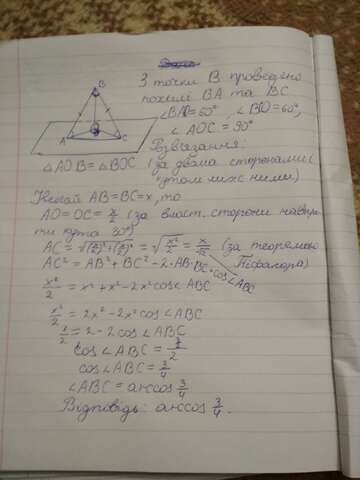 B
A
C
З точки B проведено
похилі BA та BC
∠BAO=60°, ∠BCO=60°,
∠AOC=90°
Розв'язання:
△AOB=△BOC (за двома сторонами і
кутом між ними)
Нехай AB=BC=x, то
AO=OC=x/2 (за власт. сторони навпро
ти кута 30°)
AC=√((x/2)²+(x/2)²)=√(x²/2)=x/√2 (за теоремою
Піфагора)
AC²=AB²+BC²-2·AB·BC·cos∠ABC
x²/2=x²+x²-2x²cos∠ABC
x²/2=2x²-2x²cos∠ABC
1/2=2-2cos∠ABC
cos∠ABC=
cos∠ABC=3/4
∠ABC=arccos 3/4
Відповідь: arccos 3/4.